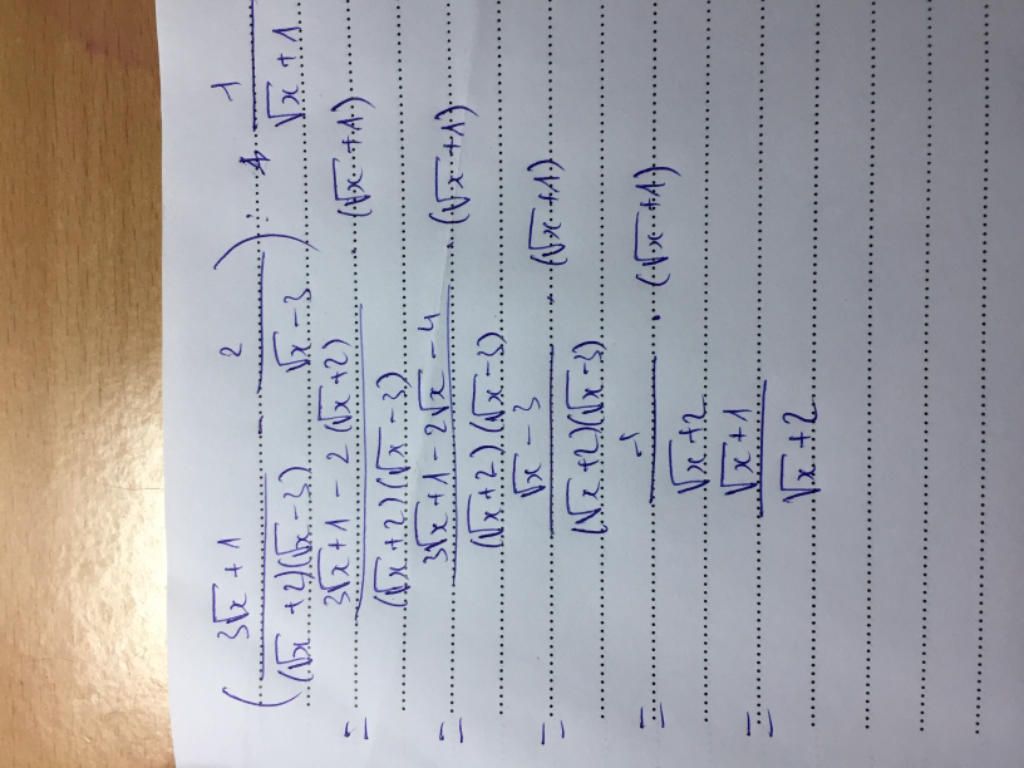 ( (3√x + 1)/((√x + 2)(√x - 3)) - 2/(√x - 3) ) : 1/(√x + 1)
= (3√x + 1 - 2(√x + 2))/((√x + 2)(√x - 3)) . (√x + 1)
= (3√x + 1 - 2√x - 4)/((√x + 2)(√x - 3)) . (√x + 1)
= (√x - 3)/((√x + 2)(√x - 3)) . (√x + 1)
= 1/(√x + 2) . (√x + 1)
= (√x + 1)/(√x + 2)